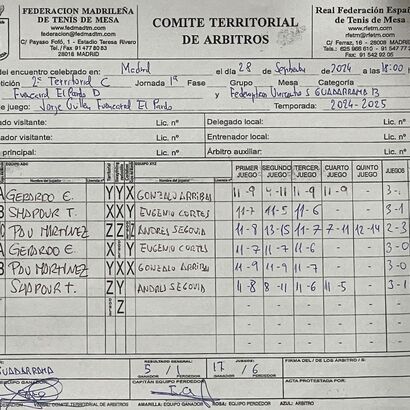 FEDERACION MADRILEÑA
DE TENIS DE MESA
federacion@fedmadtm.com
C/ Payaso Fofó, 1 - Estadio Teresa Rivero
Tel./Fax 91 477 80 83
28018 MADRID
COMITE TERRITORIAL
DE ARBITROS
Real Federación Españ
de Tenis de Mesa
www.rfetm.com
28018 MADRID
encuentro celebrado en: Madrid el día 28 de Septiembre de 2024 a las 18:00
2ª Territorial C Jornada 1ª Fase Grupo Mesa Categoría
Funcentral El Pardo D y GUADARRAMA B
de juego: Jorge Funcentral El Pardo Temporada: 2024-2025
ado visitante: Lic. nº Delegado local: Lic. nº
ador visitante: Lic. nº Entrenador local: Lic. nº
principal: Lic. nº Árbitro auxiliar: Lic. nº
EQUIPO ABC EQUIPO XYZ PRIMER JUEGO SEGUNDO JUEGO TERCER JUEGO CUARTO JUEGO QUINTO JUEGO JUEGOS
A GERARDO E. Y Y X GONZALO ARRIBAS 11-9 4-11 11-9 11-9 3-1
B SHAPOUR T. X X Y EUGENIO CORTES 11-7 11-5 11-6 3-0
C PAU MARTINEZ Z Z Z ANDRES SEGOVIA 11-8 13-15 11-7 7-11 12-14 2-3
A GERARDO E. X Y EUGENIO CORTES 11-7 11-7 11-6 3-0
B PAU MARTINEZ Y X X GONZALO ARRIBAS 11-9 11-9 11-7 3-0
SHAPOUR T. Z Y Z ANDRES SEGOVIA 11-8 8-11 11-6 11-5 3-1
Z
GUADARRAMA
RESULTADO FINAL JUEGOS: FIRMA DEL / DE LOS ARBITRO/S:
5 / 1 17 / 6
GANADOR PERDEDOR GANADOR PERDEDOR
EQUIPO GANADOR CAPITÁN EQUIPO PERDEDOR ACTA PROTESTADA POR:
COMITÉ TERRITORIAL DE ARBITROS AMARILLA: EQUIPO GANADOR ROSA: EQUIPO PERDEDOR AZUL: ARBITRO